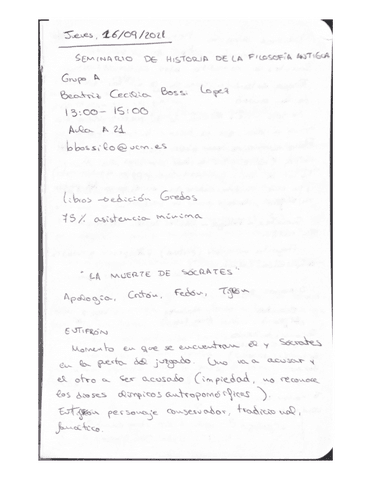 Jueves, 16/09/2021
SEMINARIO DE HISTORIA DE LA FILOSOFÍA ANTIGUA
Grupo A
Beatriz Cecilia Bossi López
13:00 - 15:00
Aula A 21
bbossilo@ucm.es
libros → edición Gredos
75% asistencia mínima
"LA MUERTE DE SÓCRATES"
Apología, Critón, Fedón,
EUTIFRÓN
Momento en que se encuentran él y Sócrates
en la puerta del juzgado. Uno va a acusar y
el otro a ser acusado (impiedad, no reconoce
los dioses olímpicos antropomórficos).
Eutifrón personaje conservador, tradicional,
fanático.